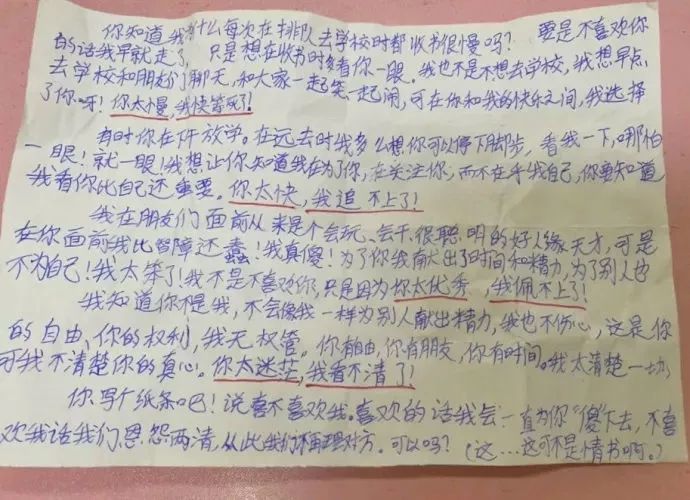 你知道我为什么每次在排队去学校时都收书很慢吗？要是不喜欢你
的话我早就走了，只是想在收书时多看你一眼。我也不是不想去学校，我想早点
去学校和朋友们聊天，和大家一起笑一起闹，可在你和我的快乐之间，我选择
了你呀！你太慢，我快等死了！
有时你在下午放学。在远去时我多么想你可以停下脚步，看我一下，哪怕
一眼！就一眼！我想让你知道我在为了你，在关注你，而不在乎我自己，你要知道
我看你比自己还重要。你太快，我追不上了！
我在朋友们面前从来是个会玩、会干、很聪明的好人缘天才，可是
在你面前我比智障还蠢！我真傻！为了你我献出了时间和精力，为了别人也
不为自己！我太笨了！我不是不喜欢你，只是因为你太优秀，我佩不上了！
我知道你不是我，不会像我一样为别人献出精力，我也不伤心，这是你
的自由、你的权利，我无权管。你有自由，你有朋友，你有时间。我太清楚一切，
可我不清楚你的真心。你太迷茫，我看不清了！
你写个纸条吧！说喜不喜欢我。喜欢的话我会一直为你“傻”下去，不喜
欢我话我们恩怨两清，从此我们不再理对方。可以吗？（这…这可不是情书啊。）